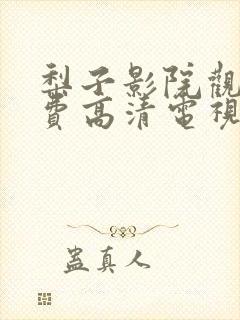 梨子影院觀
費高清電視
蠱真人